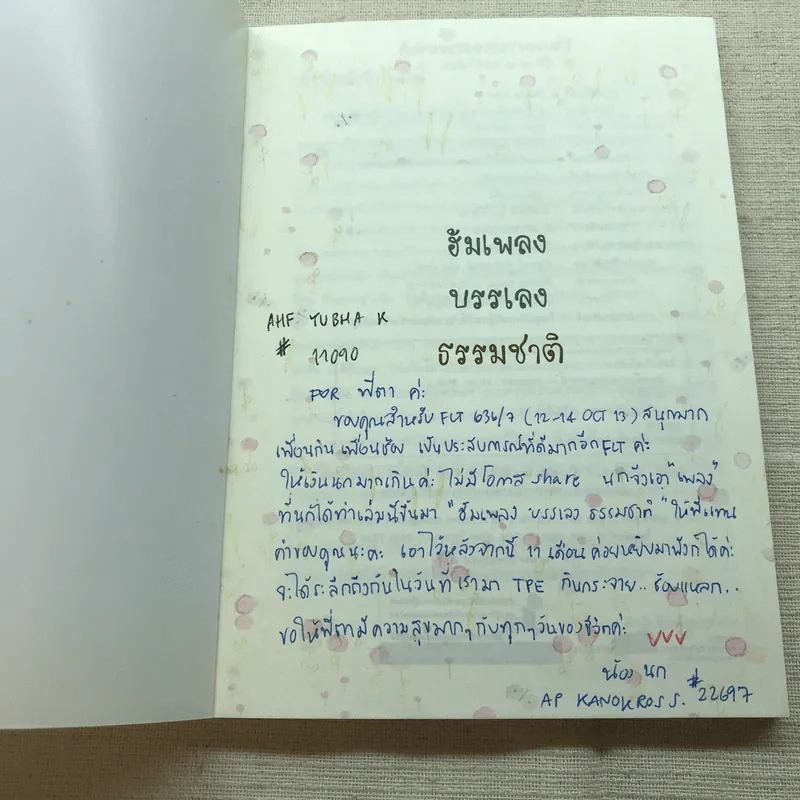 ฮัมเพลง
บรรเลง
ธรรมชาติ
AHF YUBHA K
# 11090
FOR พี่ตา ค่ะ
ขอบคุณสำหรับ FLT 636/7 (12-14 OCT 13) สนุกมาก
เพื่อนกิน เพื่อนช้อป เป็นประสบการณ์ที่ดีมากอีก FLT ค่ะ
ให้เงินนกมากเกินค่ะ ไม่มีโอกาส share นกจึงเอา "เพลง"
ที่นกได้ทำเล่มนี้ขึ้นมา "ฮัมเพลง บรรเลง ธรรมชาติ" ให้พี่แทน
คำขอบคุณนะคะ เอาไว้หลังจากนี้ 11 เดือน ค่อยหยิบมาฟังก็ได้ค่ะ
จะได้ระลึกถึงกันในวันที่เรามา TPE กินกระจาย.. ช้อปแหลก..
ขอให้พี่ตามีความสุขมากๆ กับทุกๆ วันของชีวิตค่ะ
น้อง นก
AP KANOKROS S. #22697